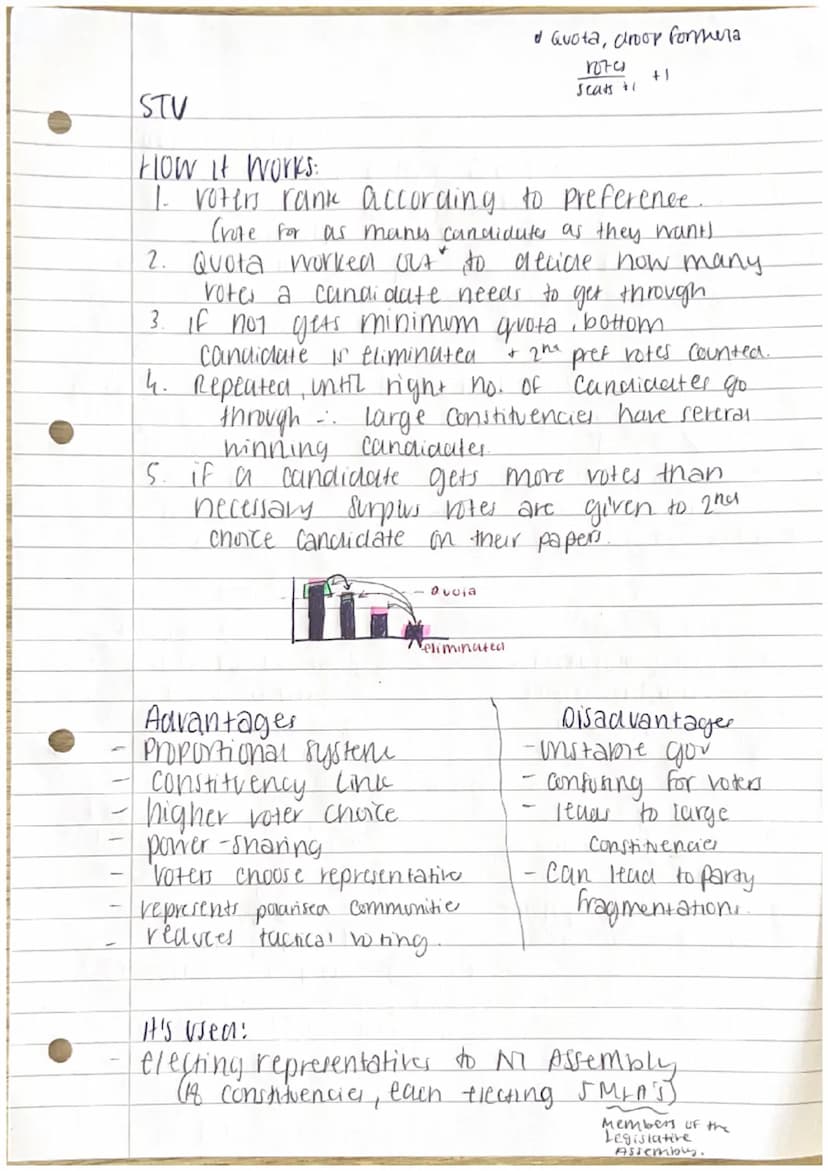 * Quota, droop formula
votes
seats +1 +1
STV
How it works:
1. voters rank according to preference.
(vote for as many candidates as they want)
2. Quota worked out* to decide how many
votes a candidate needs to get through
3. if not gets minimum quota, bottom
candidate is eliminated + 2nd pref votes counted.
4. Repeated, until right no. of candidates go
through ∴ large constituencies have several
winning candidates.
5. if a candidate gets more votes than
necessary surplus votes are given to 2nd
choice candidate on their papers.
Quota
eliminated
Advantages
- Proportional system
- constituency link
- higher voter choice
- power-sharing
- voters choose representative
- represents polarised communities
- reduces tactical voting.
Disadvantages
- unstable gov
- confusing for voters
- leads to large
constituencies
- can lead to party
fragmentations.
It's used:
- electing representatives to NI Assembly
(18 constituencies, each electing 5 MLA's)
Members of the
Legislative
Assembly.